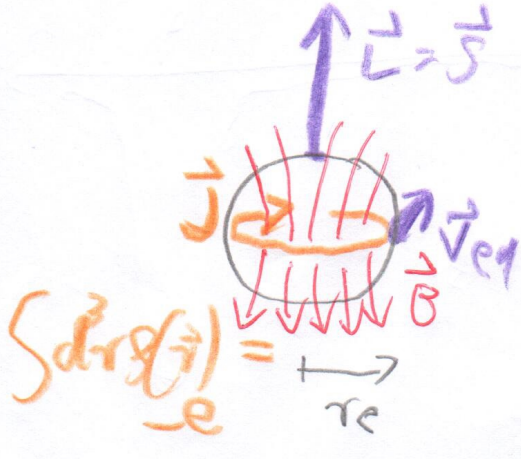 L⃗ = S⃗
J⃗
v⃗eq
B⃗
∫d³r ρ(r⃗) =
-e
re